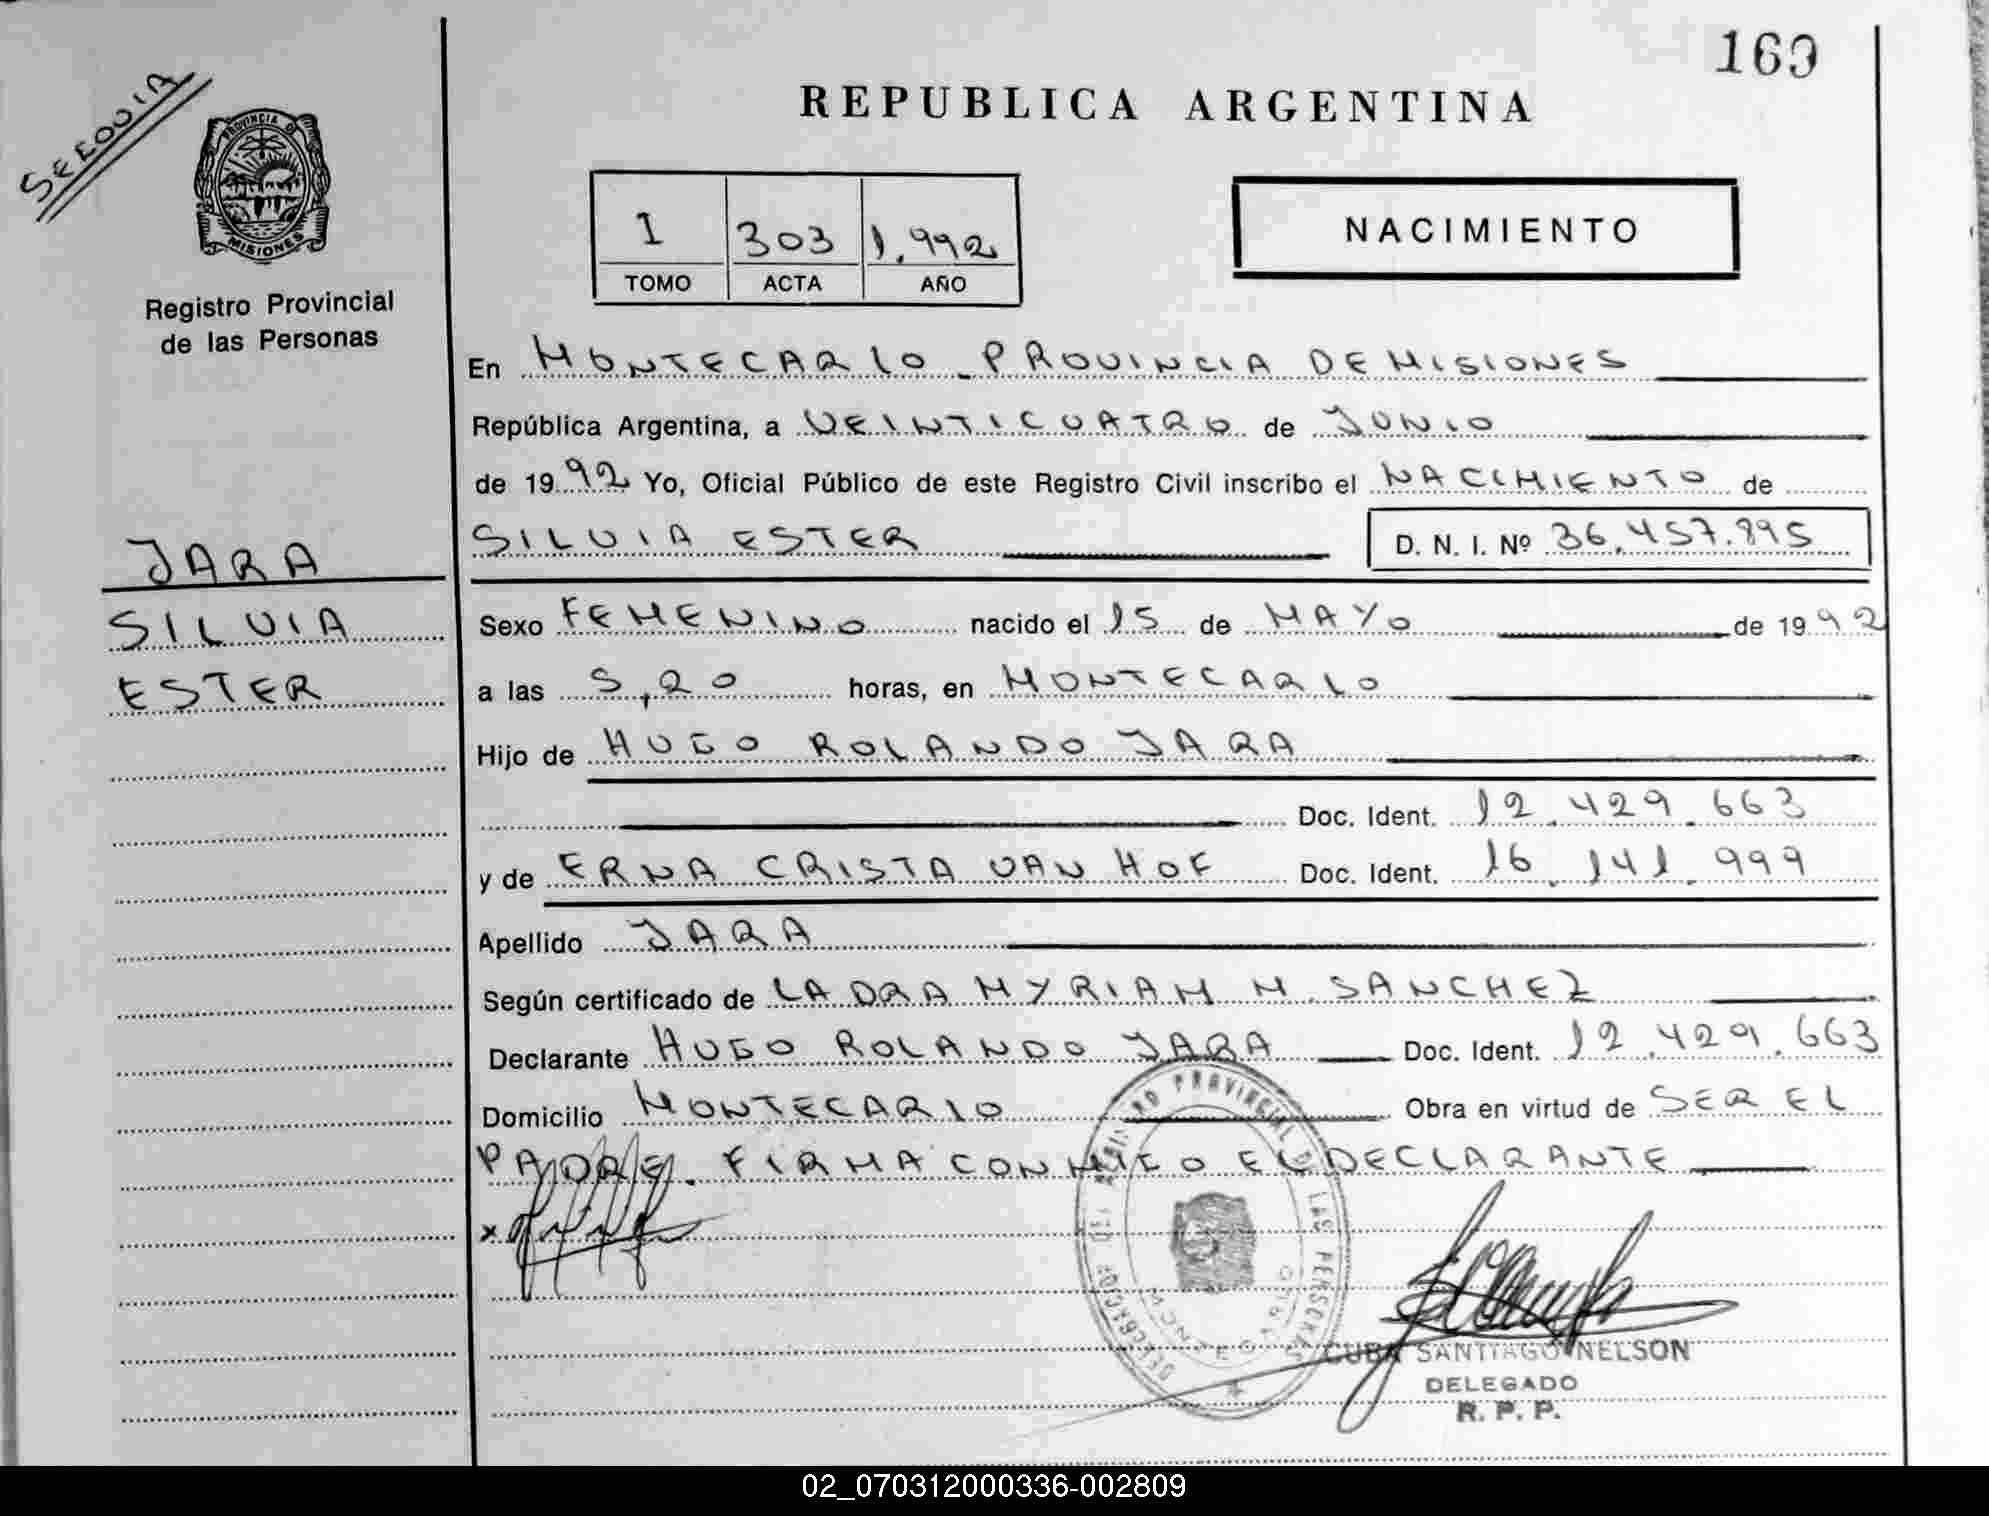 160
SEEOUIA
PROVINCIA D
MISIONES
Registro Provincial
de las Personas
REPUBLICA ARGENTINA
1 303 1.992
TOMO ACTA AÑO
NACIMIENTO
En MONTECARLO - PROVINCIA DE MISIONES
República Argentina, a VEINTICUATRO de JUNIO
de 1992 Yo, Oficial Público de este Registro Civil inscribo el NACIMIENTO de
SILVIA ESTER D. N. I. Nº 36.457.895
JARA
SILVIA
ESTER
Sexo FEMENINO nacido el 15 de MAYO de 1992
a las 5,20 horas, en MONTECARLO
Hijo de HUGO ROLANDO JARA
Doc. Ident. 12.429.663
y de ERNA CRISTA VAN HOF Doc. Ident. 16.141.999
Apellido JARA
Según certificado de LA DRA MYRIAM M. SANCHEZ
Declarante HUGO ROLANDO JARA Doc. Ident. 12.429.663
Domicilio MONTECARLO Obra en virtud de SER EL
PADRE. FIRMA CONMIGO EL DECLARANTE
x
CUBA SANTIAGO NELSON
DELEGADO
R. P. P.
02_070312000336-002809